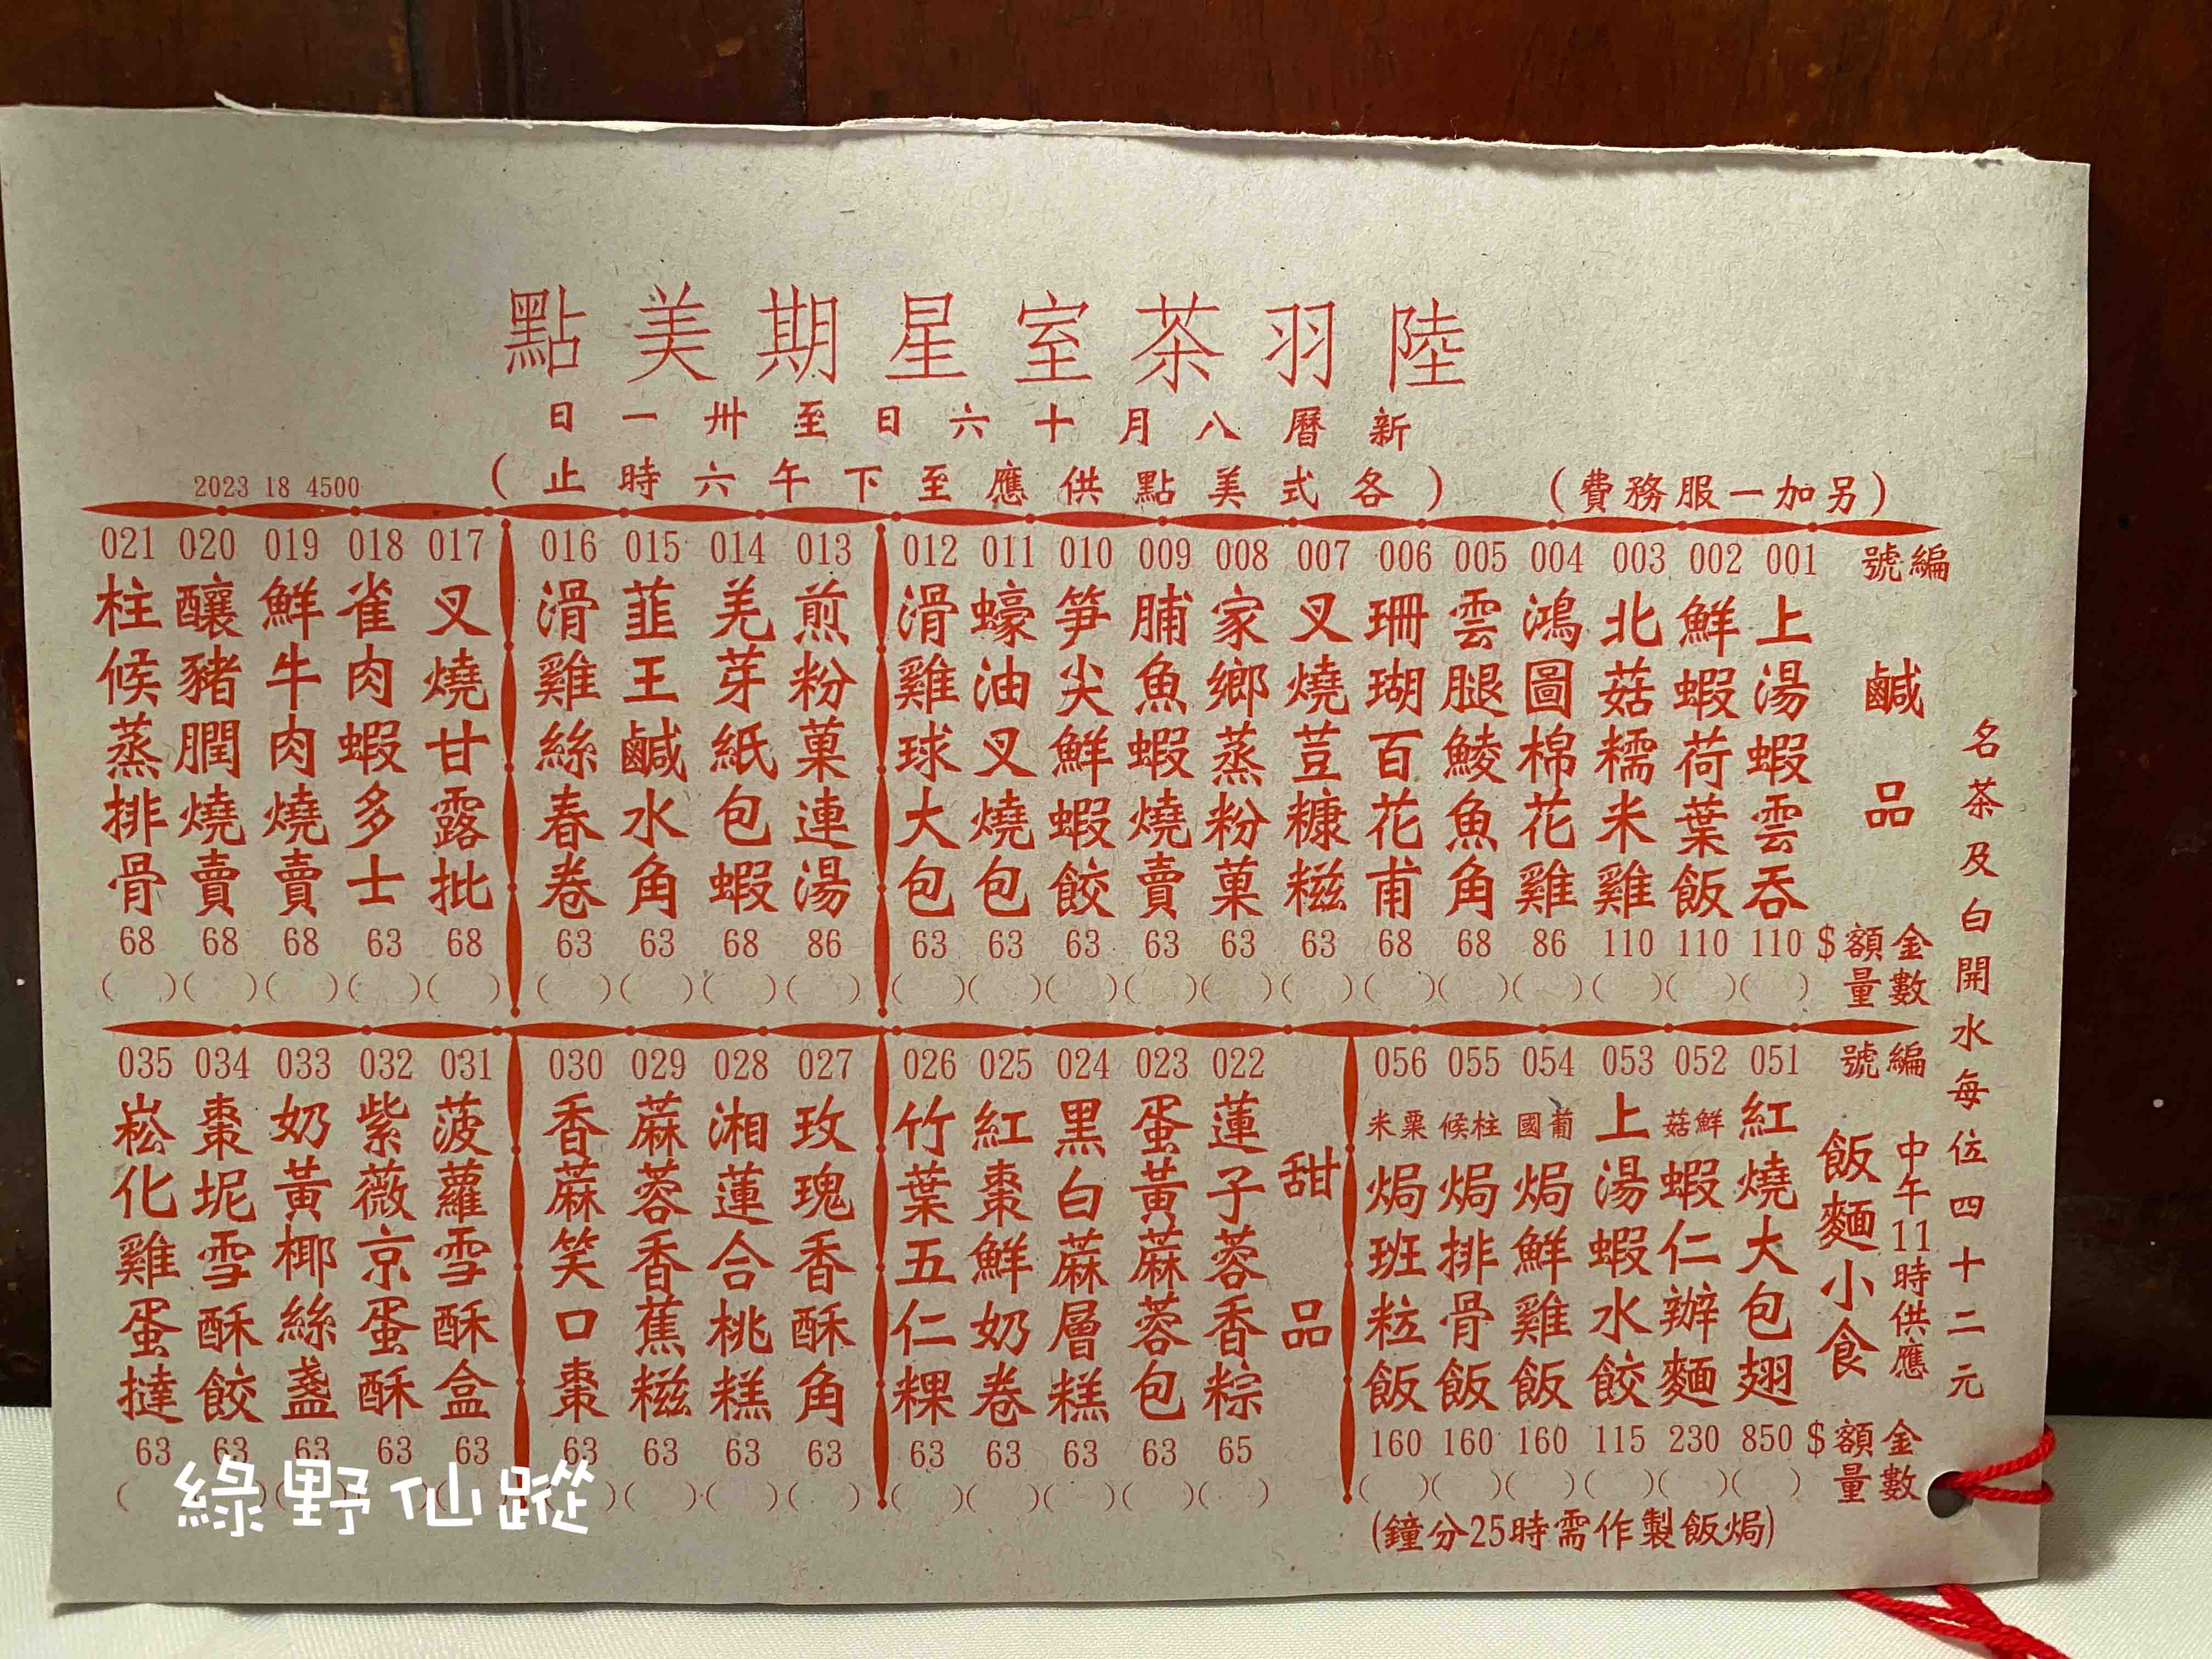 陸羽茶室星期美點
新曆八月十六日至卅一日
(各式美點供應至下午六時止)
(另加一服務費)
2023 18 4500
名茶及白開水每位四十二元
編號
鹹品
金額$
數量
001 上湯蝦雲吞 110 ( )
002 鮮蝦荷葉飯 110 ( )
003 北菇糯米雞 110 ( )
004 鴻圖棉花雞 86 ( )
005 雲腿鯪魚角 68 ( )
006 珊瑚百花甫 68 ( )
007 叉燒荳糠糍 63 ( )
008 家鄉蒸粉菓 63 ( )
009 脯魚蝦燒賣 63 ( )
010 笋尖鮮蝦餃 63 ( )
011 蠔油叉燒包 63 ( )
012 滑雞球大包 63 ( )
013 煎粉菓連湯 86 ( )
014 羌芽紙包蝦 68 ( )
015 韮王鹹水角 63 ( )
016 滑雞絲春卷 63 ( )
017 叉燒甘露批 68 ( )
018 雀肉蝦多士 63 ( )
019 鮮牛肉燒賣 68 ( )
020 釀豬膶燒賣 68 ( )
021 柱候蒸排骨 68 ( )
編號
中午11時供應
飯麵小食
金額$
數量
051 紅燒大包翅 850 ( )
052 鮮菇蝦仁辦麵 230 ( )
053 上湯蝦水餃 115 ( )
054 葡國焗鮮雞飯 160 ( )
055 柱候焗排骨飯 160 ( )
056 粟米焗班粒飯 160 ( )
(焗飯製作需時25分鐘)
甜品
022 蓮子蓉香粽 65 ( )
023 蛋黃蔴蓉包 63 ( )
024 黑白蔴層糕 63 ( )
025 紅棗鮮奶卷 63 ( )
026 竹葉五仁粿 63 ( )
027 玫瑰香酥角 63 ( )
028 湘蓮合桃糕 63 ( )
029 蔴蓉香蕉糍 63 ( )
030 香蔴笑口棗 63
031 菠蘿雪酥盒 63
032 紫薇京蛋酥 63
033 奶黃椰絲盞 63
034 棗坭雪酥餃 63
035 崧化雞蛋撻 63
綠野仙蹤